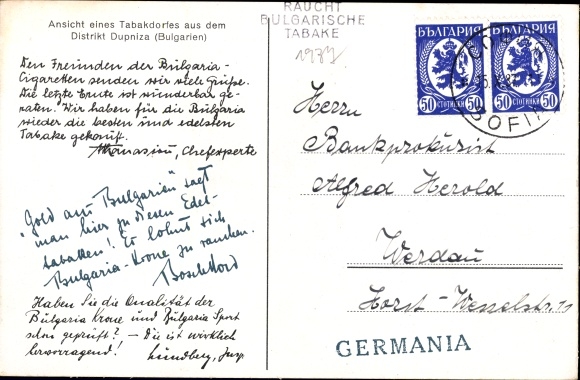 Ansicht eines Tabakdorfes aus dem
Distrikt Dupniza (Bulgarien)
Den Freunden der Bulgaria-
Cigaretten senden wir viele Grüße.
Die letzte Ernte ist wunderbar ge-
raten. Wir haben für die Bulgaria
wieder die besten und edelsten
Tabake gekauft.
Athanasiou, Chefexperte
"Gold aus Bulgarien" sagt
man hier zu diesen Edel-
tabaken! Es lohnt sich
Bulgaria-Krone zu rauchen.
Haben Sie die Qualität der
Bulgaria Krone und Bulgaria Sport
schon geprüft? – Die ist wirklich
hervorragend!
Lundberg,
RAUCHT
BULGARISCHE
TABAKE
1937
БЪЛГАРИЯ
50 СТОТИНКИ 50
БЪЛГАРИЯ
50 СТОТИНКИ 50
SOFIA
Herrn
Bankprokurist
Alfred Herold
Werdau
Horst-Wesselstr. 11
GERMANIA